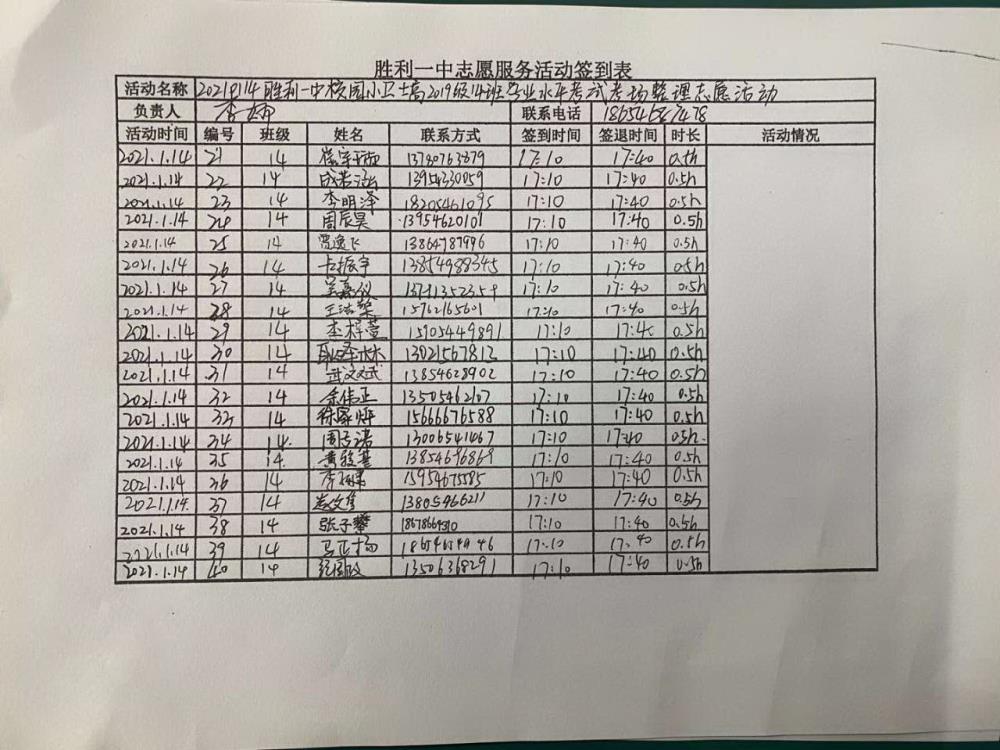 胜利一中志愿服务活动签到表
活动名称 胜利一中校园小卫士高2019级14班学业水平考试考场整理志愿活动
负责人 联系电话 18654687478
活动时间 编号 班级 姓名 联系方式 签到时间 签退时间 时长 活动情况
2021.1.14 21 14 13780763879 17:10 17:40 0.5h
2021.1.14 22 14 成若涵 13954330059 17:10 17:40 0.5h
2021.1.14 23 14 李明泽 18205461095 17:10 17:40 0.5h
2021.1.14 24 14 周辰昊 13954620101 17:10 17:40 0.5h
2021.1.14 25 14 贾逸飞 13864787996 17:10 17:40 0.5h
2021.1.14 26 14 卡振宇 13854988345 17:10 17:40 0.5h
2021.1.14 27 14 吴嘉仪 17:10 17:40 0.5h
2021.1.14 28 14 15762165601 17:10 17:40 0.5h
2021.1.14 29 14 李梓萱 15905449891 17:10 17:40 0.5h
2021.1.14 30 14 13021567812 17:10 17:40 0.5h
2021.1.14 31 14 武文斌 13854628902 17:10 17:40 0.5h
2021.1.14 32 14 余伟正 13505462107 17:10 17:40 0.5h
2021.1.14 33 14 徐家烨 15666676588 17:10 17:40 0.5h
2021.1.14 34 14. 周子诺 13006541067 17:10 17:40 0.5h.
2021.1.14 35 14. 黄毅基 13854696869 17:10 17:40 0.5h
2021.1.14 36 14 15954675585 17:10 17:40 0.5h
2021.1.14. 37 14 13805466211 17:10 17:40 0.5h
2021.1.14 38 14 张子攀 17:10 17:40 0.5h
2021.1.14 39 14 马正扬 17:10 17:40 0.5h
2021.1.14 40 14 13506368291 17:10 17:40 0.5h